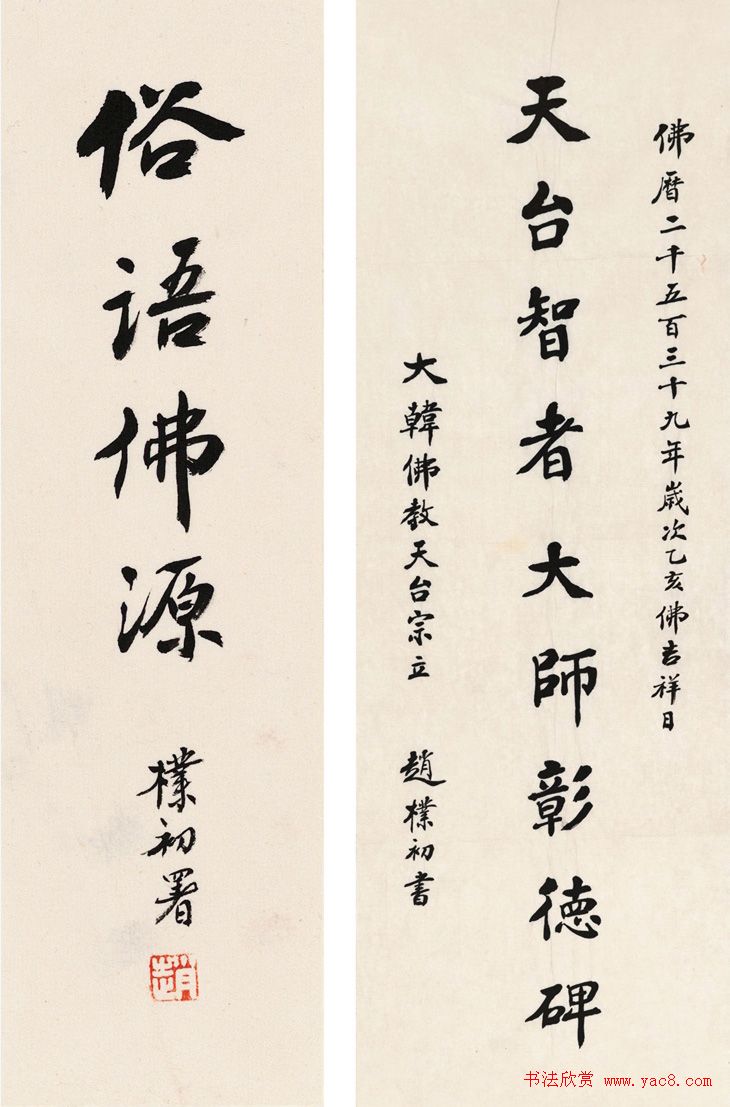 佛曆二千五百三十九年歲次乙亥佛吉祥日
天台智者大師彰德碑
大韓佛教天台宗立 趙樸初書
俗語佛源
樸初署
趙
书法欣赏 www.yac8.com